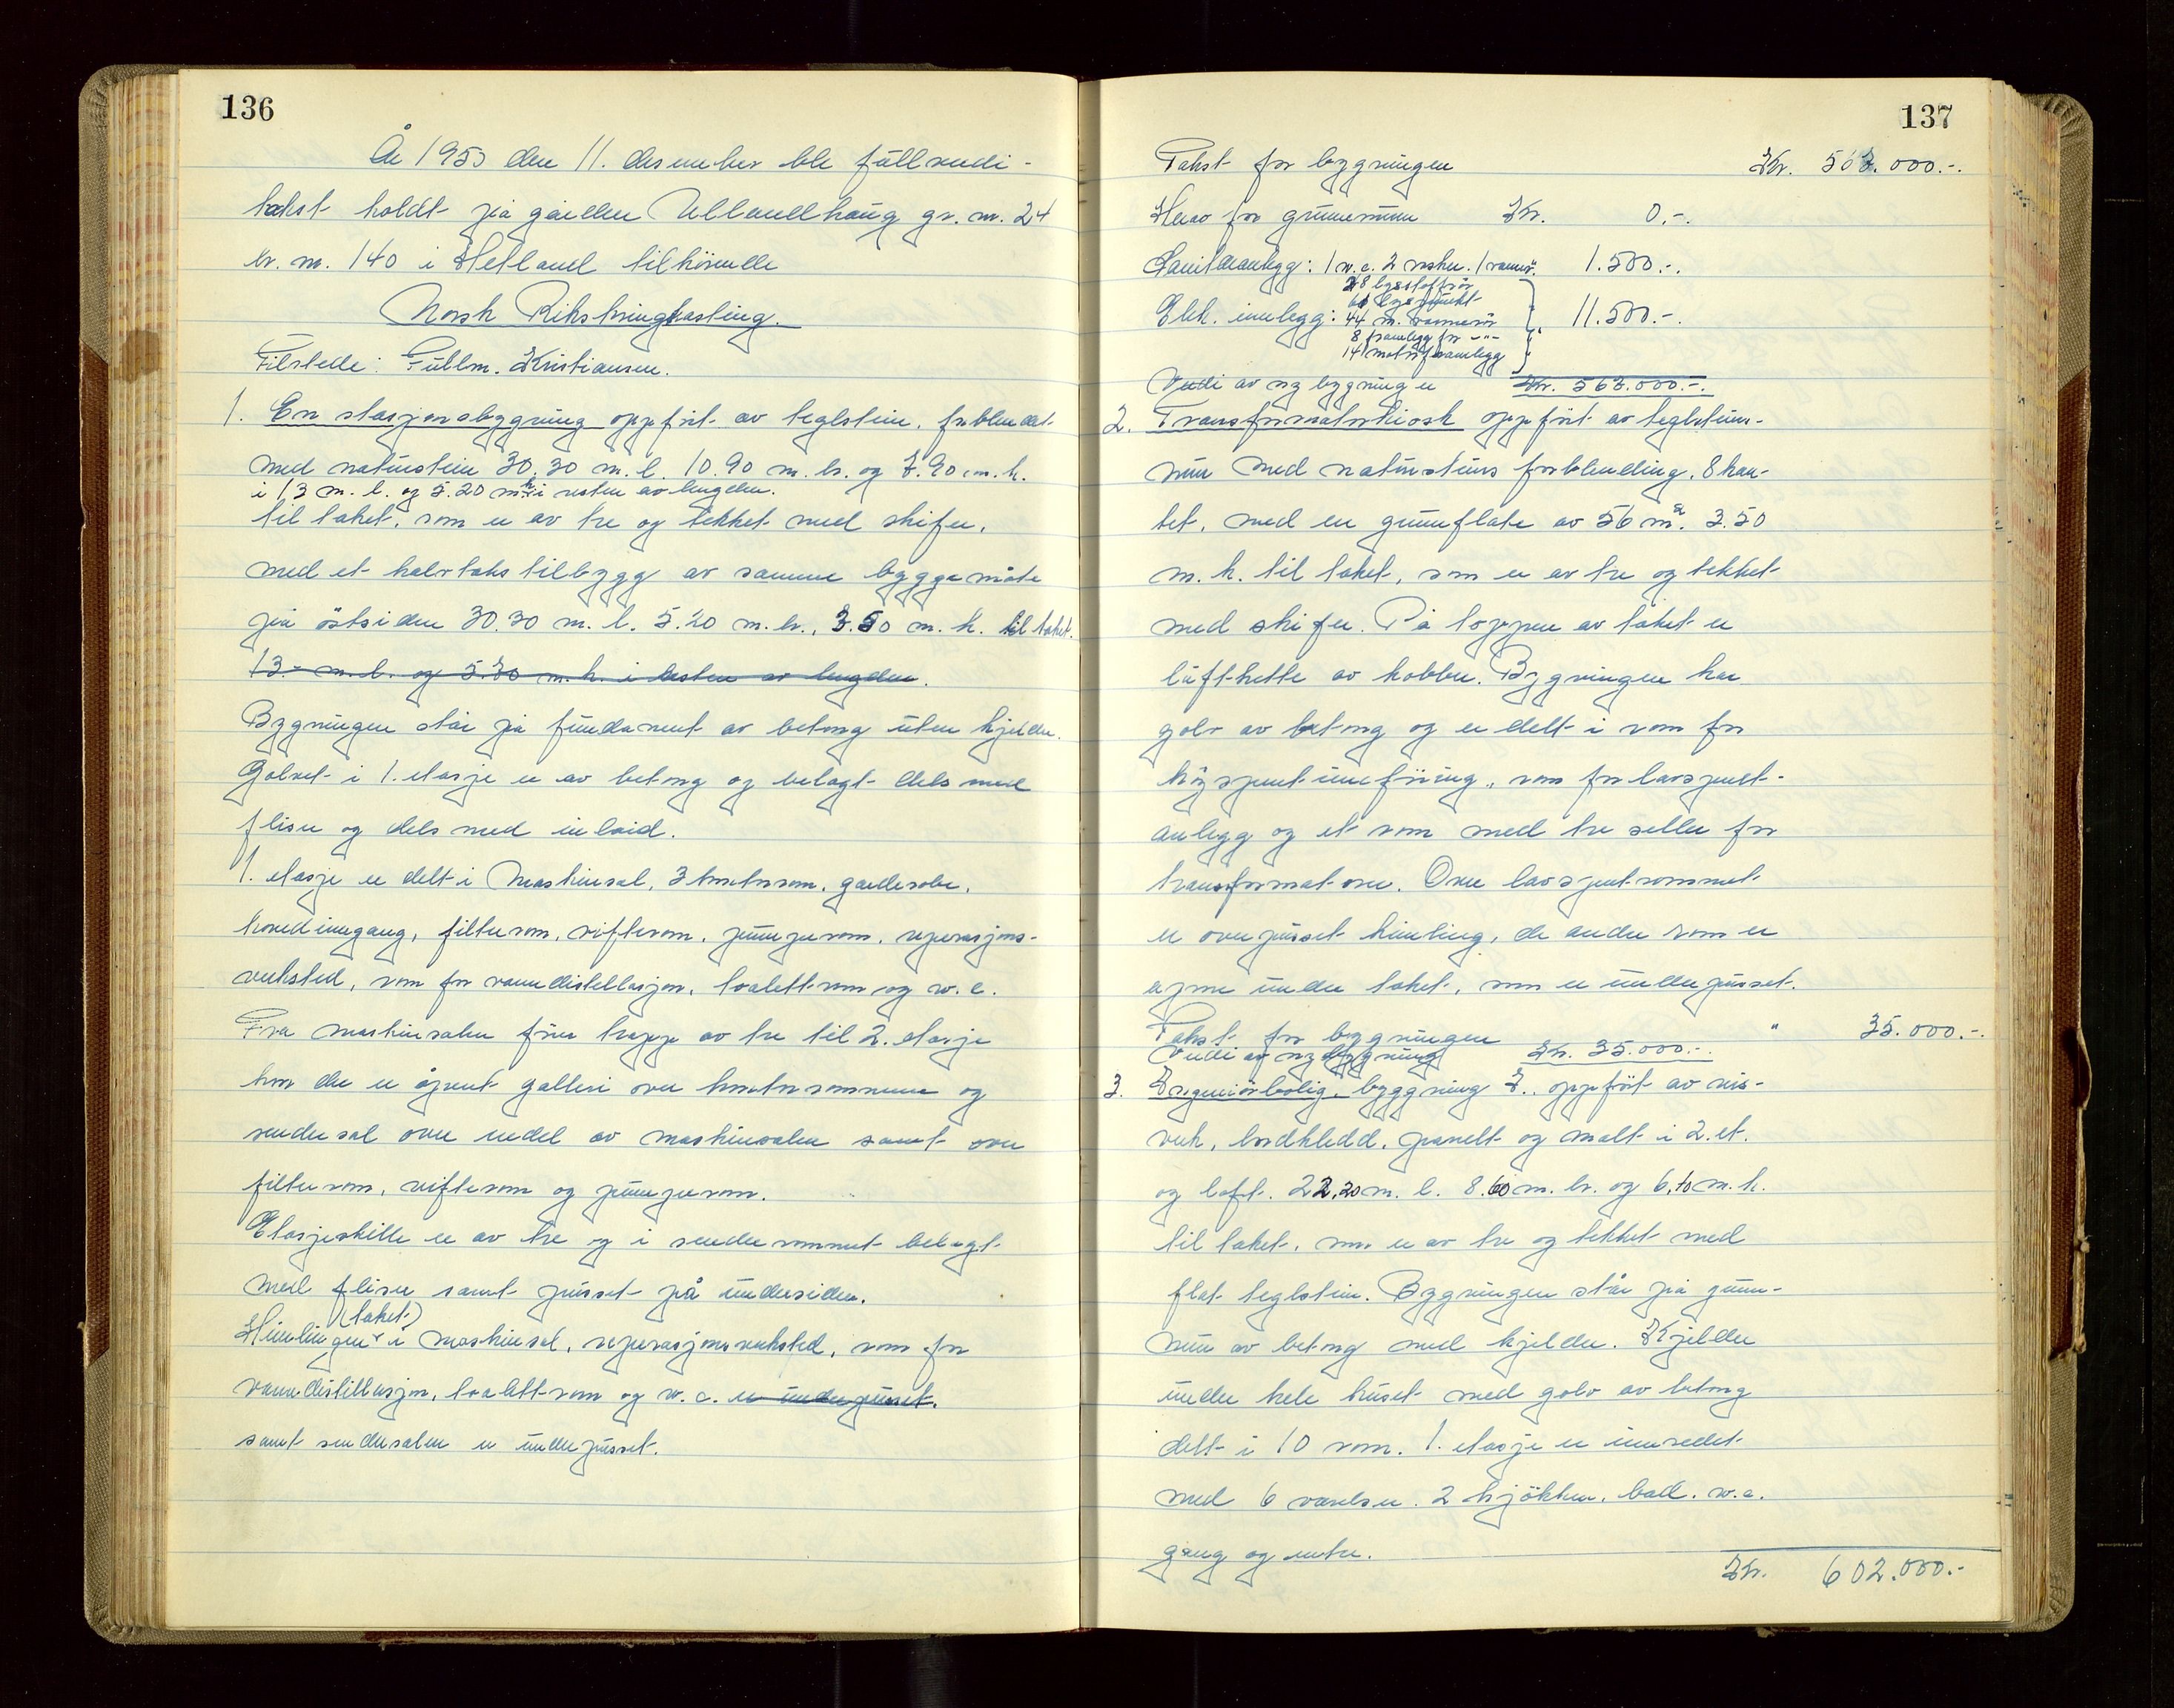 136
År 1953 den 11. desember ble fullverdi-
takst holdt på gården Ullandhaug gr. nr. 24
br. nr. 140 i Hetland tilhørende
Norsk Rikskringkasting.
Tilstede: Fullm. Kristiansen.
1. En stasjonsbygning oppført av teglstein, forblendet
med naturstein 30.30 m. l. 10.90 m. br. og 7.90 m. h.
i 13 m. l. og 5.20 m h. i resten av lengden.
til taket, som er av tre og tekket med skifer,
med et halvtakstilbygg av samme byggemåte
på östsiden 30.30 m. l. 5.20 m. br., 3.50 m. h. til taket.
13.- m. l. og 5.20 m. h. i resten av lengden.
Bygningen står på fundament av betong uten kjelder.
Golvet i 1. etasje er av betong og belagt dels med
fliser og dels med inlaid.
1. etasje er delt i Maskinsal, 3 kontorrom, garderobe,
hovedinngang, filterrom, vifterom, pumperom, reperasjons-
verksted, rom for vanndistellasjon, toalettrom og w. c.
Fra maskinsalen förer trapp av tre til 2. etasje
hvor der er åpent galleri over kontorrommene og
sendersal over endel av maskinsalen samt over
filterrom, vifterom og pumperom.
Etasjeskille er av tre og i senderrommet belagt
med fliser samt pusset på undersiden.
(taket)
Himlingen i maskinsal, reperasjonsverksted, rom for
vanndistillasjon, toalettrom og w. c. er underpusset.
samt sendersalen er underpusset.
137
Takst for bygningen Kr. 562.000.-.
Herav for grunnmur Kr. 0.-.
Sanitæranlegg: 1 w. c. 2 vasker. 1 varmv. 1.500.-.
28 lysstoffrör
61 lyspunkt
Elek. innlegg: 44 m. varmerör 11.500.-.
8 framlegg for -"-
14 motorframlegg
Verdi av ny bygning er Kr. 567.000.-.
2. Transformatorkiosk oppfört av teglsteins-
mur med natursteins forblending, 8 kan-
tet, med en grunnflate av 56 m². 3.50
m. h. til taket, som er av tre og tekket
med skifer. På toppen av taket er
lufthette av kobber. Bygningen har
golv av betong og er delt i rom for
högspentinnföring, rom for lavspent-
anlegg og et rom med tre seller for
transformatorer. Over lavspentrommet
er overpusset himling, de andre rom er
åpne under taket, som er underpusset.
Takst for bygningen " 35.000.-.
Verdi av ny bygning Kr. 35.000.-.
3. Ingeniörbolig, bygning I. oppfört av reis-
verk, bordkledd, panelt og malt i 2. et.
og loft. 22.20 m. l. 8.60 m. br. og 6.40 m. h.
til taket, som er av tre og tekket med
flat teglstein. Bygningen står på grunn-
mur av betong med kjelder. Kjelder
under hele huset med golv av betong
delt i 10 rom. 1. etasje er innredet
med 6 værelser. 2 kjökken, bad. w. c.
gang og entre.
Kr. 602.000.-